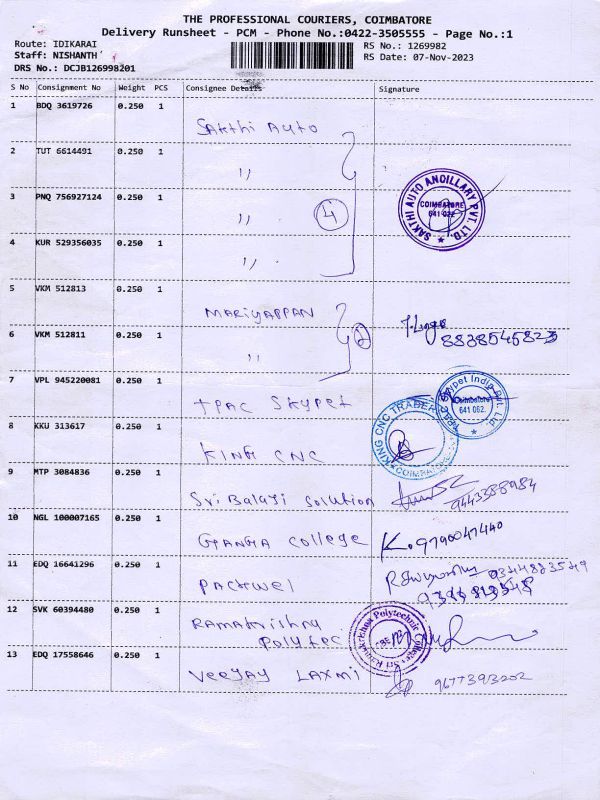 THE PROFESSIONAL COURIERS, COIMBATORE
Delivery Runsheet - PCM - Phone No.:0422-3505555 - Page No.:1
Route: IDIKARAI RS No.: 1269982
Staff: NISHANTH RS Date: 07-Nov-2023
DRS No.: DCJB126998201
S No Consignment No Weight PCS Consignee Details Signature
1 BDQ 3619726 0.250 1 Sakthi Auto
2 TUT 6614491 0.250 1 ,,
3 PNQ 756927124 0.250 1 ,, 4
SAKTHI AUTO ANCILLARY PVT. LTD.
COIMBATORE
641 022
4 KUR 529356035 0.250 1 ,,
5 VKM 512813 0.250 1 MARIYAPPAN
6 VKM 512811 0.250 1 ,, 2 8838545823
7 VPL 945220081 0.250 1 TPAC SKYPET
Coimbatore
641 062.
8 KKU 313617 0.250 1 KING CNC
KING CNC TRADER
COIMBATORE
9 MTP 3084836 0.250 1 Sri Balaji Solution 9443388984
10 NGL 100007165 0.250 1 GANGA College K. 9790047440
11 EDQ 16641296 0.250 1 PACKWEL
12 SVK 60394480 0.250 1 RAMAKRISHNA
POLYTEC
13 EDQ 17558646 0.250 1 VEEJAY LAXMI 9677393202